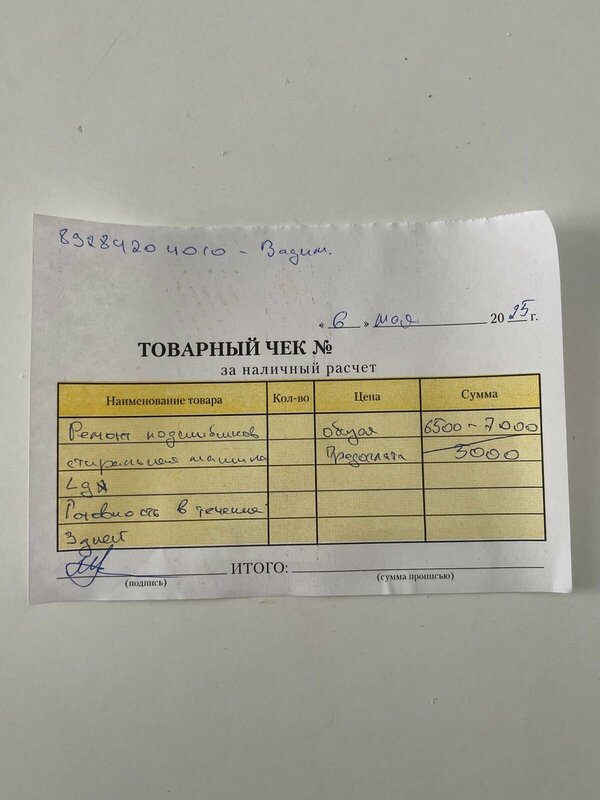 89284204010 - Вадим.
« 6 » мая 2025 г.
ТОВАРНЫЙ ЧЕК №
за наличный расчет
Наименование товара Кол-во Цена Сумма
Ремонт подшибников общая 6500 - 7000
стиральная машина Предоплата 3000
Готовность в течении
3 дней
ИТОГО:
(подпись) (сумма прописью)